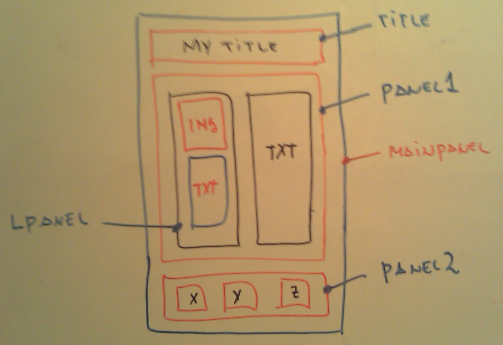 TITLE
MY TITLE
PANEL1
IMG
TXT
MAINPANEL
TXT
LPANEL
PANEL2
X Y Z